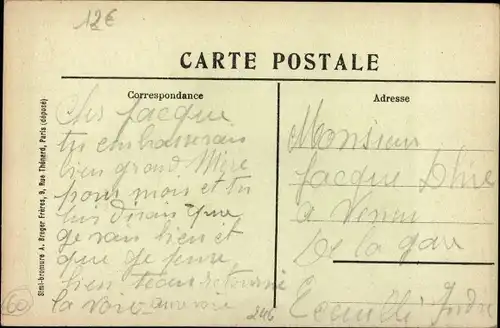 12€
CARTE POSTALE
Correspondance
Adresse
Cher Jacque
tu embrasseras
bien grand Mère
pour moi et tu
lui dirais que
je sais bien et
que je pense
bien
la voir au revoir
Monsieur
Jacque
a
De la gare
Indre
246
60
Simi-bromure A. Breger Frères, 9, Rue Thénard, Paris (déposé)